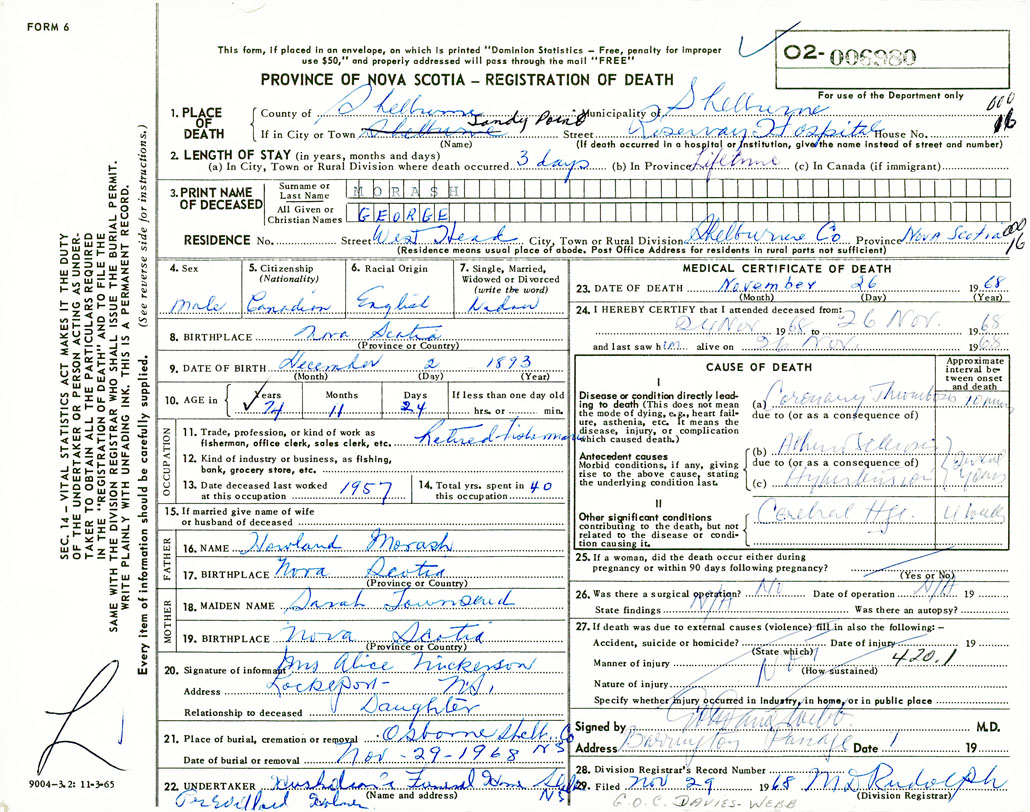 FORM 6
This form, if placed in an envelope, on which is printed "Dominion Statistics – Free, penalty for improper
use $50," and properly addressed will pass through the mail "FREE"
PROVINCE OF NOVA SCOTIA – REGISTRATION OF DEATH
02-006980
For use of the Department only
1. PLACE OF DEATH County of Shelburne Municipality of Shelburne
If in City or Town Shelburne Sandy Point Street Roseway Hospital House No. 16
(Name) (If death occurred in a hospital or institution, give the name instead of street and number)
2. LENGTH OF STAY (in years, months and days)
(a) In City, Town or Rural Division where death occurred 3 days (b) In Province Lifetime (c) In Canada (if immigrant)
3. PRINT NAME OF DECEASED Surname or Last Name MORASH
All Given or Christian Names GEORGE
RESIDENCE No. Street West Head City, Town or Rural Division Shelburne Co Province Nova Scotia 16
(Residence means usual place of abode. Post Office Address for residents in rural parts not sufficient)
4. Sex Male
5. Citizenship (Nationality) Canadian
6. Racial Origin English
7. Single, Married, Widowed or Divorced (write the word)
8. BIRTHPLACE Nova Scotia
(Province or Country)
9. DATE OF BIRTH December 2 1893
(Month) (Day) (Year)
10. AGE in Years 74 Months 11 Days 24 If less than one day old hrs. or min.
OCCUPATION
11. Trade, profession, or kind of work as fisherman, office clerk, sales clerk, etc. Retired
12. Kind of industry or business, as fishing, bank, grocery store, etc.
13. Date deceased last worked at this occupation 1957
14. Total yrs. spent in this occupation 40
15. If married give name of wife or husband of deceased
FATHER
16. NAME Howland Morash
17. BIRTHPLACE Nova Scotia
(Province or Country)
MOTHER
18. MAIDEN NAME Sarah Townsend
19. BIRTHPLACE Nova Scotia
(Province or Country)
20. Signature of informant Mrs Alice Nickerson
Address Lockeport N.S.
Relationship to deceased Daughter
21. Place of burial, cremation or removal Osborne Shelb. Co NS
Date of burial or removal Nov-29-1968
22. UNDERTAKER Funeral Home NS
(Name and address)
MEDICAL CERTIFICATE OF DEATH
23. DATE OF DEATH November 26 1968
(Month) (Day) (Year)
24. I HEREBY CERTIFY that I attended deceased from:
24 Nov. 1968 to 26 Nov. 1968
and last saw him alive on 26 Nov. 1968
CAUSE OF DEATH
Approximate interval between onset and death
I
Disease or condition directly leading to death (This does not mean the mode of dying, e.g., heart failure, asthenia, etc. It means the disease, injury, or complication which caused death.)
(a) Coronary Thrombosis 10 mins
due to (or as a consequence of)
Antecedent causes
Morbid conditions, if any, giving rise to the above cause, stating the underlying condition last.
(b)
due to (or as a consequence of)
(c) Hypertension Several Years
II
Other significant conditions contributing to the death, but not related to the disease or condition causing it.
Cerebral Hge. 4 weeks
25. If a woman, did the death occur either during pregnancy or within 90 days following pregnancy?
(Yes or No)
26. Was there a surgical operation? No Date of operation N/A 19
State findings N/A Was there an autopsy?
27. If death was due to external causes (violence) fill in also the following: –
Accident, suicide or homicide? Date of injury 19
(State which)
Manner of injury No 420.1
(How sustained)
Nature of injury
Specify whether injury occurred in Industry, in home, or in public place
Signed by M.D.
Address Barrington Passage Date 19
28. Division Registrar's Record Number
29. Filed Nov 29 1968 M.D. Rudolph
(Division Registrar)
G.O.C. DAVIES-WEBB
SEC. 14 – VITAL STATISTICS ACT MAKES IT THE DUTY
OF THE UNDERTAKER OR PERSON ACTING AS UNDER-
TAKER TO OBTAIN ALL THE PARTICULARS REQUIRED
IN THE "REGISTRATION OF DEATH" AND TO FILE THE
SAME WITH THE DIVISION REGISTRAR WHO SHALL ISSUE THE BURIAL PERMIT.
WRITE PLAINLY WITH UNFADING INK. THIS IS A PERMANENT RECORD.
Every item of information should be carefully supplied. (See reverse side for instructions.)
9004–3.2: 11-3-65